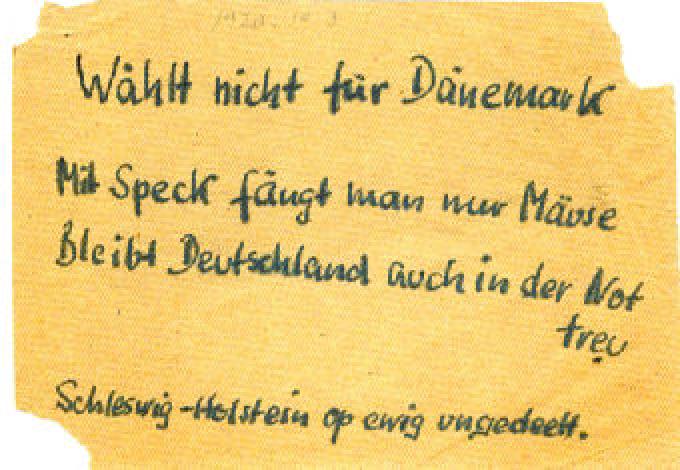 Wählt nicht für Dänemark
Mit Speck fängt man nur Mäuse
Bleibt Deutschland auch in der Not
treu
Schleswig-Holstein op ewig ungedeelt.